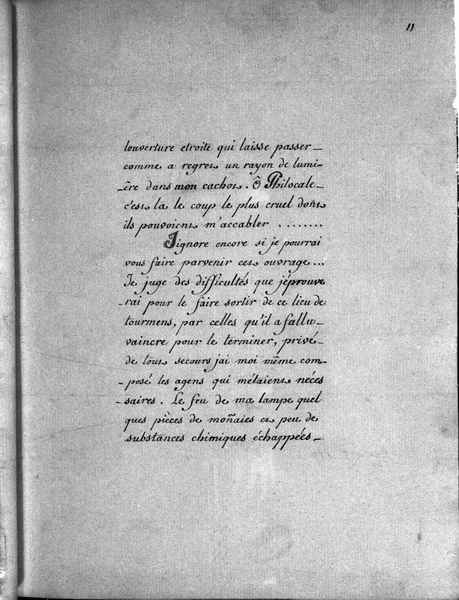 11
louverture etroite qui laisse passer_
comme a regret un rayon de lumi_
_ère dans mon cachot. Ô Philocale_
c'est la le coup le plus cruel dont
ils pouvoient m'accabler ........
Jignore encore si je pourrai
vous faire parvenir cet ouvrage...
Je juge des difficultés que j'éprouve
_rai pour le faire sortir de ce lieu de
tourmens, par celles qu'il a fallu_
vaincre pour le terminer, privé_
de tout secours jai moi même com_
_posé les agens qui m'étaient néces
_saires. Le feu de ma lampe quel
ques pièces de moñaies et peu de
substances chimiques échappées_